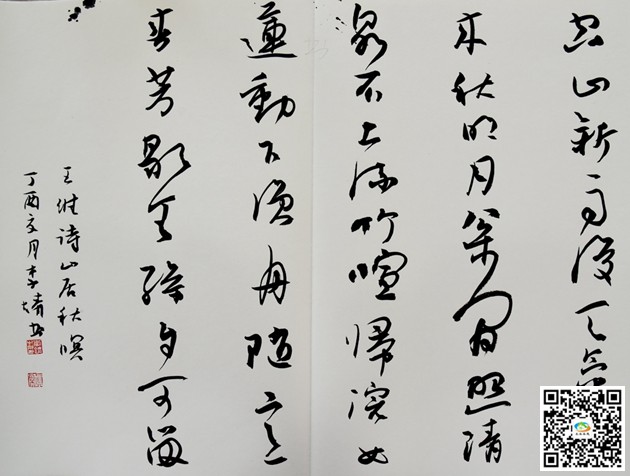 空山新雨後天氣
来秋明月松間照清
泉石上流竹喧歸浣女
蓮動下漁舟随意
春芳歇王孫自可留
王维诗山居秋暝
丁酉月李婧书